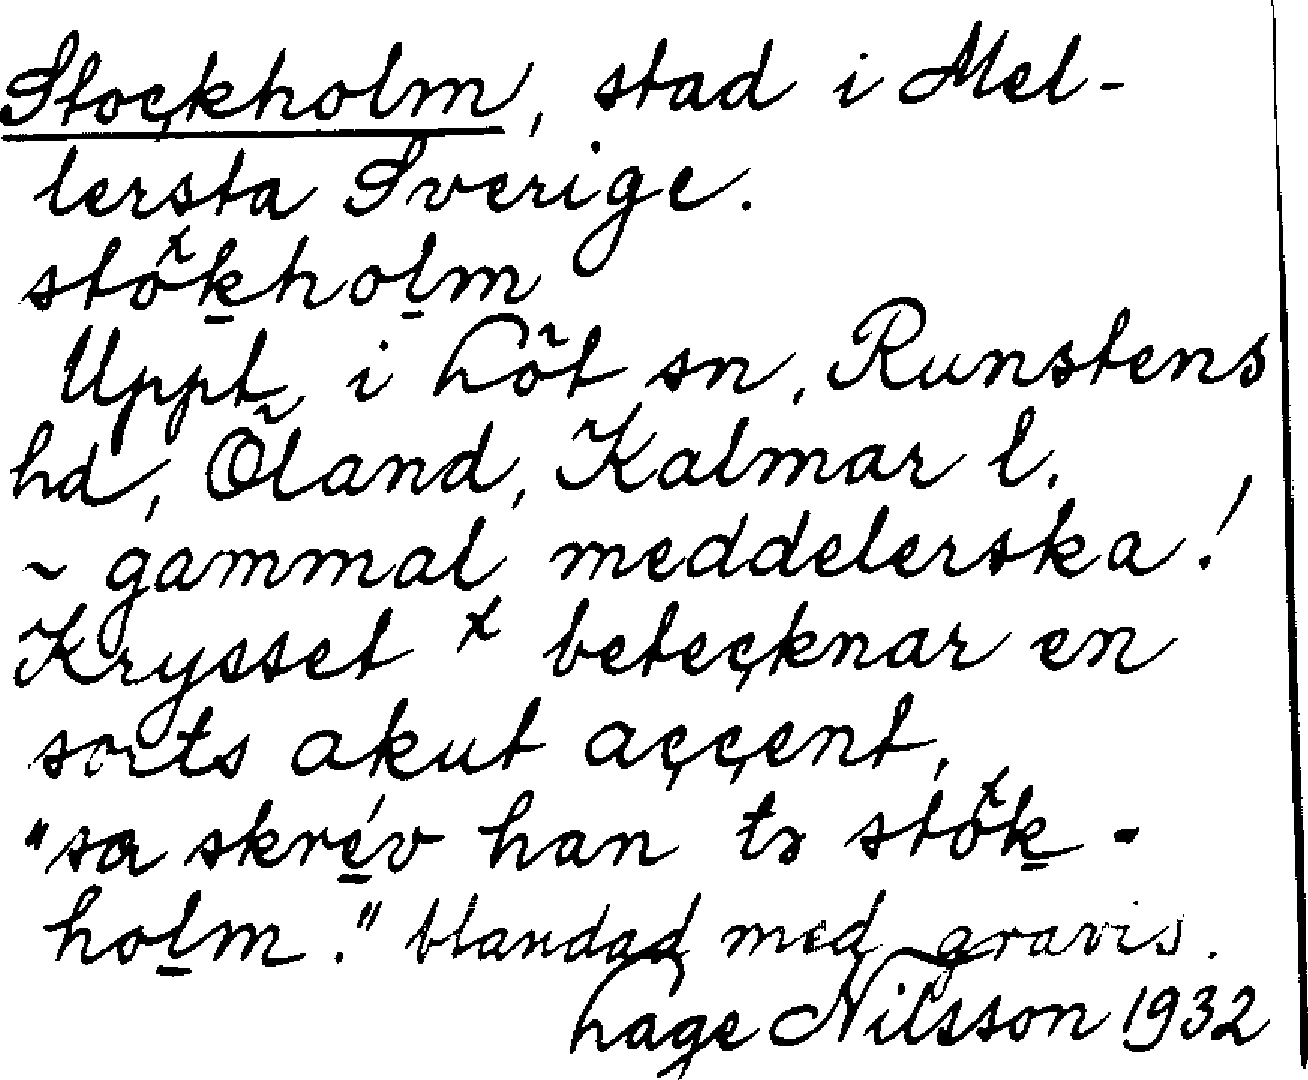 Stoçkholm, stad i Mel-
lersta Sverige.
stökholm
Uppt. i Löt sn, Runstens
hd, Öland, Kalmar l.
~ gammal meddelerska!
Krysset x beteçknar en
sorts akut aççent,
"sa skrév han ts stök-
holm." blandad med gravis.
Lage Nilsson 1932